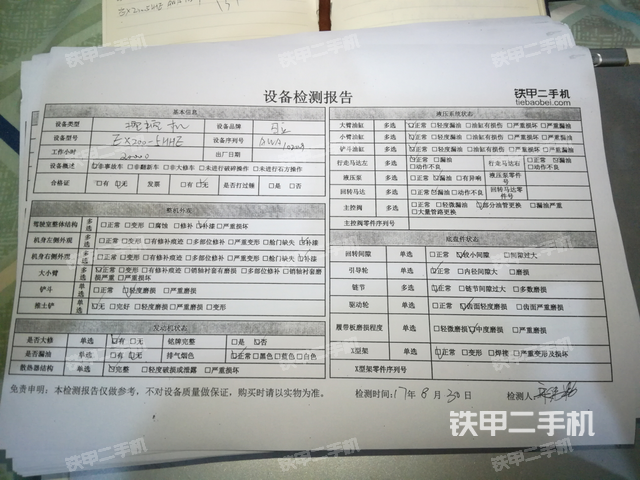 铁甲二手机
tiebaobei.com
设备检测报告
基本信息
设备类型 挖掘机 设备品牌 日立
设备型号 EX200-5HHE 设备序列号
工作小时 20000 出厂日期
设备概述 多选 □非事故车 □非翻新车 □非大修车 □未进行破碎操作 □未进行石方操作
合格证 □有 □无 发票 □有 □无 是否打过锤 □是 □否
整机外观
驾驶室整体结构 多选 □正常 □变形 □腐蚀 □修补 □补漆
机身左侧外观 多选 □正常 □变形 □有修补痕迹 □多部位修补 □严重变形 □舱门缺失 □补漆
机身右侧外观 多选 □正常 □变形 □有修补痕迹 □多部位修补 □严重变形 □舱门缺失 □补漆
大小臂 多选 □正常 □变形 □有修补痕迹 □多部位修补 □销轴衬套有磨损 □销轴衬套磨损严重 □严重损坏
铲斗 单选 □正常 □轻度磨损 □严重磨损
推土铲 单选 □无 □完好 □轻度磨损 □严重磨损 □变形
发动机状态
是否大修 单选 □有 □无 铭牌完整 □是 □否
是否漏油 单选 □有 □无 排气烟色 □正常 □黑色 □蓝色 □白色
散热器结构 单选 □完整 □轻度破损或泄露 □严重损坏
液压系统状态
大臂油缸 多选 □正常 □轻度漏油 □油缸有损伤 □严重损坏 □严重漏油
小臂油缸 多选 □正常 □轻度漏油 □油缸有损伤 □严重损坏 □严重漏油
铲斗油缸 多选 □正常 □轻度漏油 □油缸有损伤 □严重损坏 □严重漏油
行走马达左 多选 □正常 □漏油 □动作不良 行走马达右 □正常 □漏油 □动作不良
液压泵 多选 □正常 □漏油 □有异响 液压泵零件号
回转马达 多选 □正常 □漏油 □动作不良 回转马达零件号
主控阀 多选 □正常 □轻微漏油 □部分油管更换 □漏油严重 □大量管路更换
主控阀零件序列号
底盘件状态
回转间隙 单选 □正常 □较小间隙 □间隙过大
引导轮 单选 □正常 □内径间隙大 □磨损
链节 多选 □正常 □链节间隙过大 □多数磨损
驱动轮 单选 □正常 □齿面轻度磨损 □齿面严重磨损
履带板磨损程度 单选 □轻微磨损 □中度磨损 □严重磨损
X型架 单选 □正常 □变形 □焊接 □严重变形及损坏
X型架零件序列号
免责申明：本检测报告仅做参考，不对设备质量做保证，购买时请以实物为准。 检测时间：17年 8月 30日 检测人：
铁甲二手机